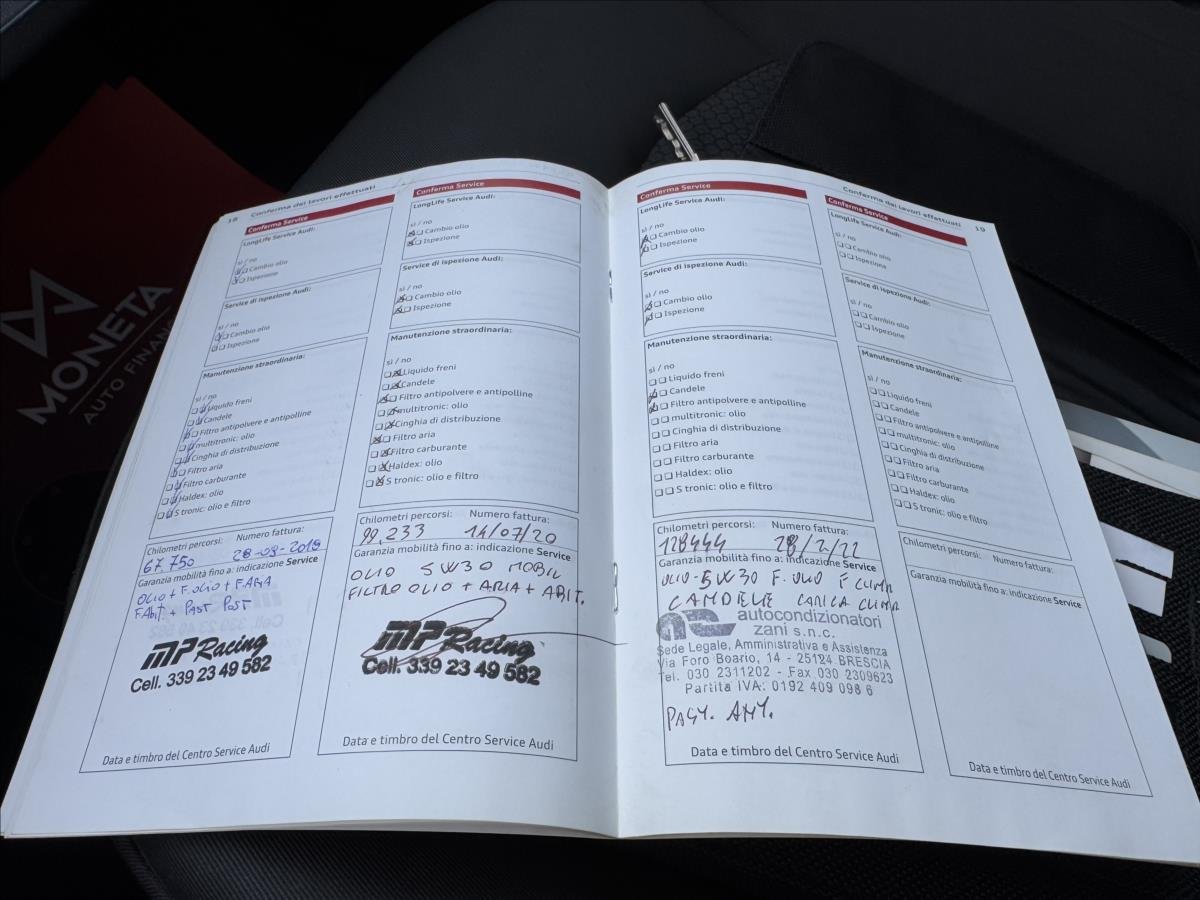 MONETA
AUTO FINAN
18 Conferma dei lavori effettuati
Conferma Service
LongLife Service Audi:
sì / no
Cambio olio
Ispezione
Service di ispezione Audi:
sì / no
Cambio olio
Ispezione
Manutenzione straordinaria:
sì / no
Liquido freni
Candele
Filtro antipolvere e antipolline
multitronic: olio
Cinghia di distribuzione
Filtro aria
Filtro carburante
Haldex: olio
S tronic: olio e filtro
Chilometri percorsi: Numero fattura:
67.750 28-09-2019
Garanzia mobilità fino a: indicazione Service
OLIO + F.OLIO + F.ARIA
F.ABIT + PAST POST
MP Racing
Cell. 339 23 49 582
Data e timbro del Centro Service Audi
Conferma Service
LongLife Service Audi:
sì / no
Cambio olio
Ispezione
Service di ispezione Audi:
sì / no
Cambio olio
Ispezione
Manutenzione straordinaria:
sì / no
Liquido freni
Candele
Filtro antipolvere e antipolline
multitronic: olio
Cinghia di distribuzione
Filtro aria
Filtro carburante
Haldex: olio
S tronic: olio e filtro
Chilometri percorsi: Numero fattura:
99,233 14/07/20
Garanzia mobilità fino a: indicazione Service
OLIO 5W30 MOBIL
FILTRO OLIO + ARIA + ABIT.
MP Racing
Cell. 339 23 49 582
Data e timbro del Centro Service Audi
Conferma Service
LongLife Service Audi:
sì / no
Cambio olio
Ispezione
Service di ispezione Audi:
sì / no
Cambio olio
Ispezione
Manutenzione straordinaria:
sì / no
Liquido freni
Candele
Filtro antipolvere e antipolline
multitronic: olio
Cinghia di distribuzione
Filtro aria
Filtro carburante
Haldex: olio
S tronic: olio e filtro
Chilometri percorsi: Numero fattura:
128444 28/2/22
Garanzia mobilità fino a: indicazione Service
OLIO-5W30 F. OLIO F CLIMA
CANDELE CARICA CLIMA
autocondizionatori
zani s.n.c.
Sede Legale, Amministrativa e Assistenza
Via Foro Boario, 14 - 25124 BRESCIA
Tel. 030 2311202 - Fax 030 2309623
Partita IVA: 0192 409 098 6
Data e timbro del Centro Service Audi
Conferma dei lavori effettuati 19
Conferma Service
LongLife Service Audi:
sì / no
Cambio olio
Ispezione
Service di ispezione Audi:
sì / no
Cambio olio
Ispezione
Manutenzione straordinaria:
sì / no
Liquido freni
Candele
Filtro antipolvere e antipolline
multitronic: olio
Cinghia di distribuzione
Filtro aria
Filtro carburante
Haldex: olio
S tronic: olio e filtro
Chilometri percorsi: Numero fattura:
Garanzia mobilità fino a: indicazione Service
Data e timbro del Centro Service Audi